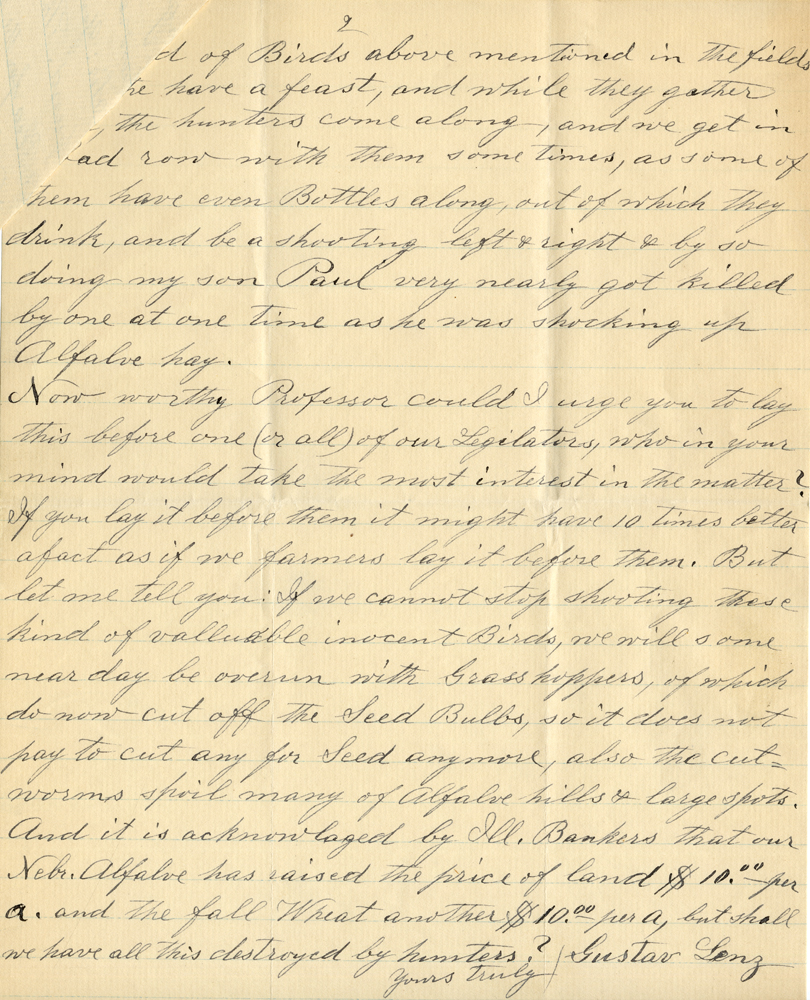 2
d of Birds above mentioned in the fields
he have a feast, and while they gather
, the hunters come along, and we get in
bad row with them some times, as some of
them have even Bottles along, out of which they
drink, and be a shooting left & right & by so
doing my son Paul very nearly got killed
by one at one time as he was shocking up
Alfalve hay.
Now worthy Professor could I urge you to lay
this before one (or all) of our Legilators, who in your
mind would take the most interest in the matter?
If you lay it before them it might have 10 times better
afact as if we farmers lay it before them. But
let me tell you: If we cannot stop shooting these
kind of valluable inocent Birds, we will some
near day be overun with Grasshoppers, of which
do now cut off the Seed Bulbs, so it does not
pay to cut any for Seed anymore, also the cut=
worms spoil many of Alfalve hills & large spots.
And it is acknowlaged by Ill. Bankers that our
Nebr. Alfalve has raised the price of land $10.00 per
a. and the fall Wheat another $10.00 per a, but shall
we have all this destroyed by hunters? Gustav Lenz
Yours truly